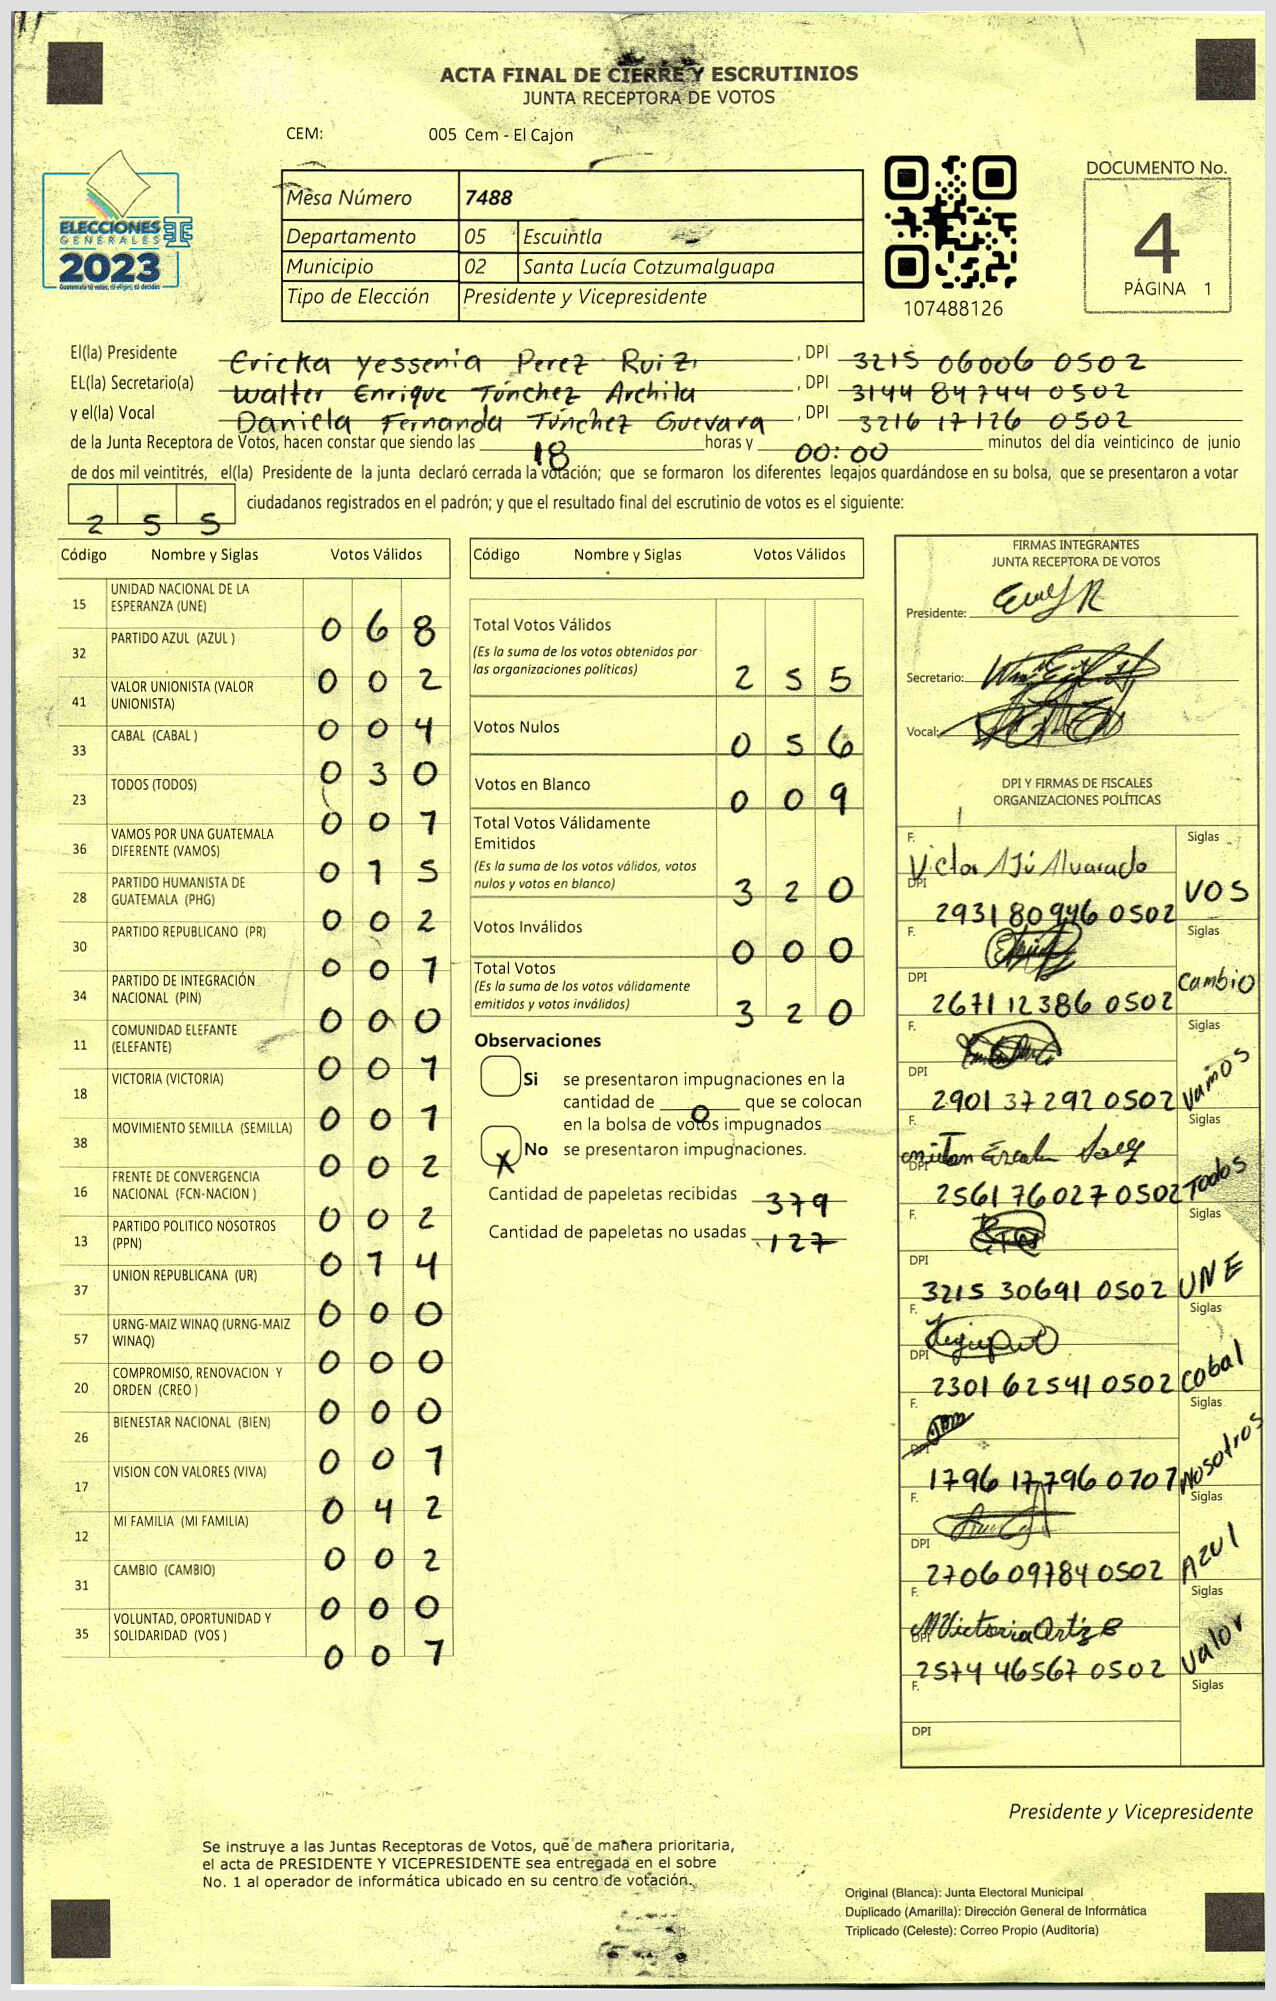 ACTA FINAL DE CIERRE Y ESCRUTINIOS
JUNTA RECEPTORA DE VOTOS
CEM: 005 Cem - El Cajon
ELECCIONES
GENERALES
2023
Guatemala tú votas, tú eliges, tú decides
Mesa Número 7488
Departamento 05 Escuintla
Municipio 02 Santa Lucía Cotzumalguapa
Tipo de Elección Presidente y Vicepresidente
107488126
DOCUMENTO No.
4
PÁGINA 1
El(la) Presidente Ericka Yessenia Perez Ruiz, DPI 3215 06006 0502
EL(la) Secretario(a) Walter Enrique Túnchez Archila, DPI 3144 84744 0502
y el(la) Vocal Daniela Fernanda Túnchez Guevara, DPI 3216 17126 0502
de la Junta Receptora de Votos, hacen constar que siendo las 18 horas y 00:00 minutos del día veinticinco de junio
de dos mil veintitrés, el(la) Presidente de la junta declaró cerrada la votación; que se formaron los diferentes legajos guardándose en su bolsa, que se presentaron a votar
2 5 5 ciudadanos registrados en el padrón; y que el resultado final del escrutinio de votos es el siguiente:
Código Nombre y Siglas Votos Válidos
15 UNIDAD NACIONAL DE LA ESPERANZA (UNE) 0 6 8
32 PARTIDO AZUL (AZUL ) 0 0 2
41 VALOR UNIONISTA (VALOR UNIONISTA) 0 0 4
33 CABAL (CABAL ) 0 3 0
23 TODOS (TODOS) 0 0 1
36 VAMOS POR UNA GUATEMALA DIFERENTE (VAMOS) 0 7 5
28 PARTIDO HUMANISTA DE GUATEMALA (PHG) 0 0 2
30 PARTIDO REPUBLICANO (PR) 0 0 1
34 PARTIDO DE INTEGRACIÓN NACIONAL (PIN) 0 0 0
11 COMUNIDAD ELEFANTE (ELEFANTE) 0 0 1
18 VICTORIA (VICTORIA) 0 0 1
38 MOVIMIENTO SEMILLA (SEMILLA) 0 0 2
16 FRENTE DE CONVERGENCIA NACIONAL (FCN-NACION ) 0 0 2
13 PARTIDO POLITICO NOSOTROS (PPN) 0 1 4
37 UNION REPUBLICANA (UR) 0 0 0
57 URNG-MAIZ WINAQ (URNG-MAIZ WINAQ) 0 0 0
20 COMPROMISO, RENOVACION Y ORDEN (CREO ) 0 0 0
26 BIENESTAR NACIONAL (BIEN) 0 0 1
17 VISION CON VALORES (VIVA) 0 4 2
12 MI FAMILIA (MI FAMILIA) 0 0 2
31 CAMBIO (CAMBIO) 0 0 0
35 VOLUNTAD, OPORTUNIDAD Y SOLIDARIDAD (VOS ) 0 0 7
Código Nombre y Siglas Votos Válidos
Total Votos Válidos
(Es la suma de los votos obtenidos por
las organizaciones políticas) 2 5 5
Votos Nulos 0 5 6
Votos en Blanco 0 0 9
Total Votos Válidamente
Emitidos
(Es la suma de los votos válidos, votos
nulos y votos en blanco) 3 2 0
Votos Inválidos 0 0 0
Total Votos
(Es la suma de los votos válidamente
emitidos y votos inválidos) 3 2 0
Observaciones
Si se presentaron impugnaciones en la
cantidad de 0 que se colocan
en la bolsa de votos impugnados
X No se presentaron impugnaciones.
Cantidad de papeletas recibidas 379
Cantidad de papeletas no usadas 127
FIRMAS INTEGRANTES
JUNTA RECEPTORA DE VOTOS
Presidente:
Secretario:
Vocal:
DPI Y FIRMAS DE FISCALES
ORGANIZACIONES POLÍTICAS
F. Victor AJú Alvarado Siglas
DPI 2931 80946 0502 VOS
F. Siglas
DPI 2671 12386 0502 Cambio
F. Siglas
DPI 2901 37292 0502 Vamos
F. Siglas
DPI 2561 76027 0502 Todos
F. Siglas
DPI 3215 30691 0502 UNE
F. Siglas
DPI 2301 62541 0502 Cabal
F. Siglas
DPI 1796 17796 0707 Nosotros
F. Siglas
DPI 2706 09784 0502 Azul
F. MVictoria Ortiz Siglas
DPI 2574 46567 0502 Valor
F. Siglas
DPI
Presidente y Vicepresidente
Se instruye a las Juntas Receptoras de Votos, que de manera prioritaria,
el acta de PRESIDENTE Y VICEPRESIDENTE sea entregada en el sobre
No. 1 al operador de informática ubicado en su centro de votación.
Original (Blanca): Junta Electoral Municipal
Duplicado (Amarilla): Dirección General de Informática
Triplicado (Celeste): Correo Propio (Auditoría)